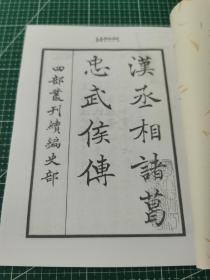 漢丞相諸葛
忠武侯傳
四部叢刊續編史部